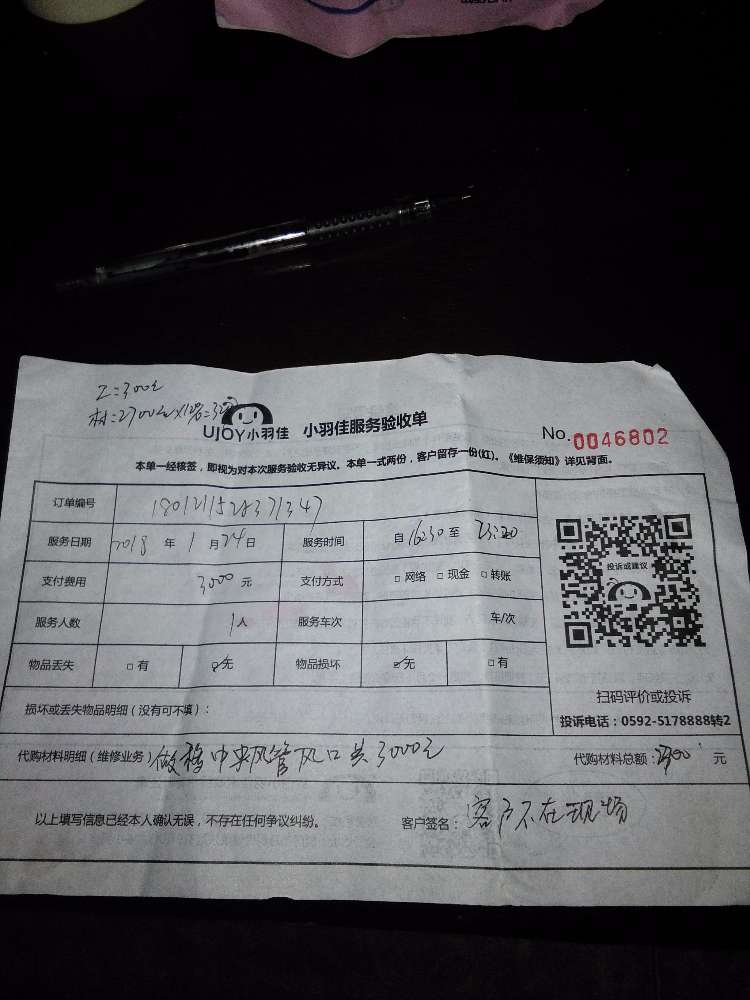 工=300元
UJOY小羽佳 小羽佳服务验收单 No.0046802
本单一经核签，即视为对本次服务验收无异议。本单一式两份，客户留存一份(红)。《维保须知》详见背面。
订单编号
服务日期 2018 年 1 月 24 日 服务时间 自 1630 至
支付费用 3000 元 支付方式 □ 网络 □ 现金 □ 转账
服务人数 1 人 服务车次 车/次
物品丢失 □ 有 ☑ 无 物品损坏 ☑ 无 □ 有
投诉或建议
扫码评价或投诉
投诉电话：0592-5178888转2
损坏或丢失物品明细（没有可不填）：
代购材料明细（维修业务） 做 中央风管风口共3000元 代购材料总额：2700 元
以上填写信息已经本人确认无误，不存在任何争议纠纷。 客户签名：客户不在现场